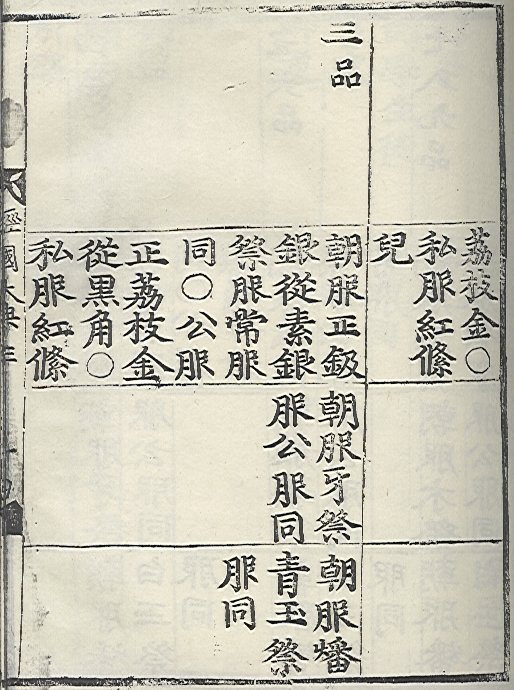 荔枝金○
私服紅絛
兒
三品
朝服正鈒
銀從素銀
祭服常服
同○公服
正荔枝金
從黑角○
私服紅絛
朝服牙祭
服公服同
朝服燔
青玉祭
服同
經國大典三